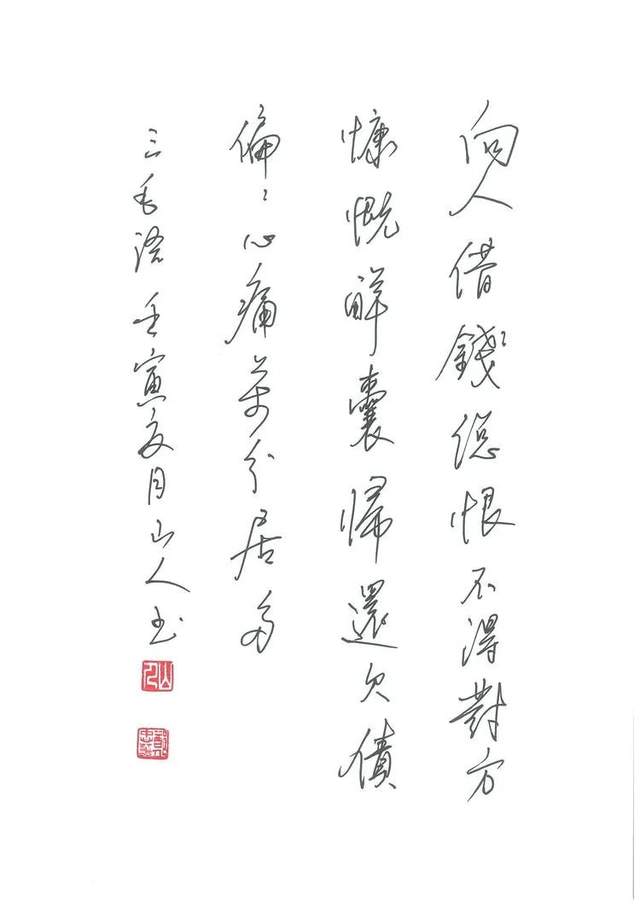 向人借錢總恨不得對方
慷慨解囊歸還欠債
偏〻心痛萬分居多
三毛語壬寅亥月山人書
山人